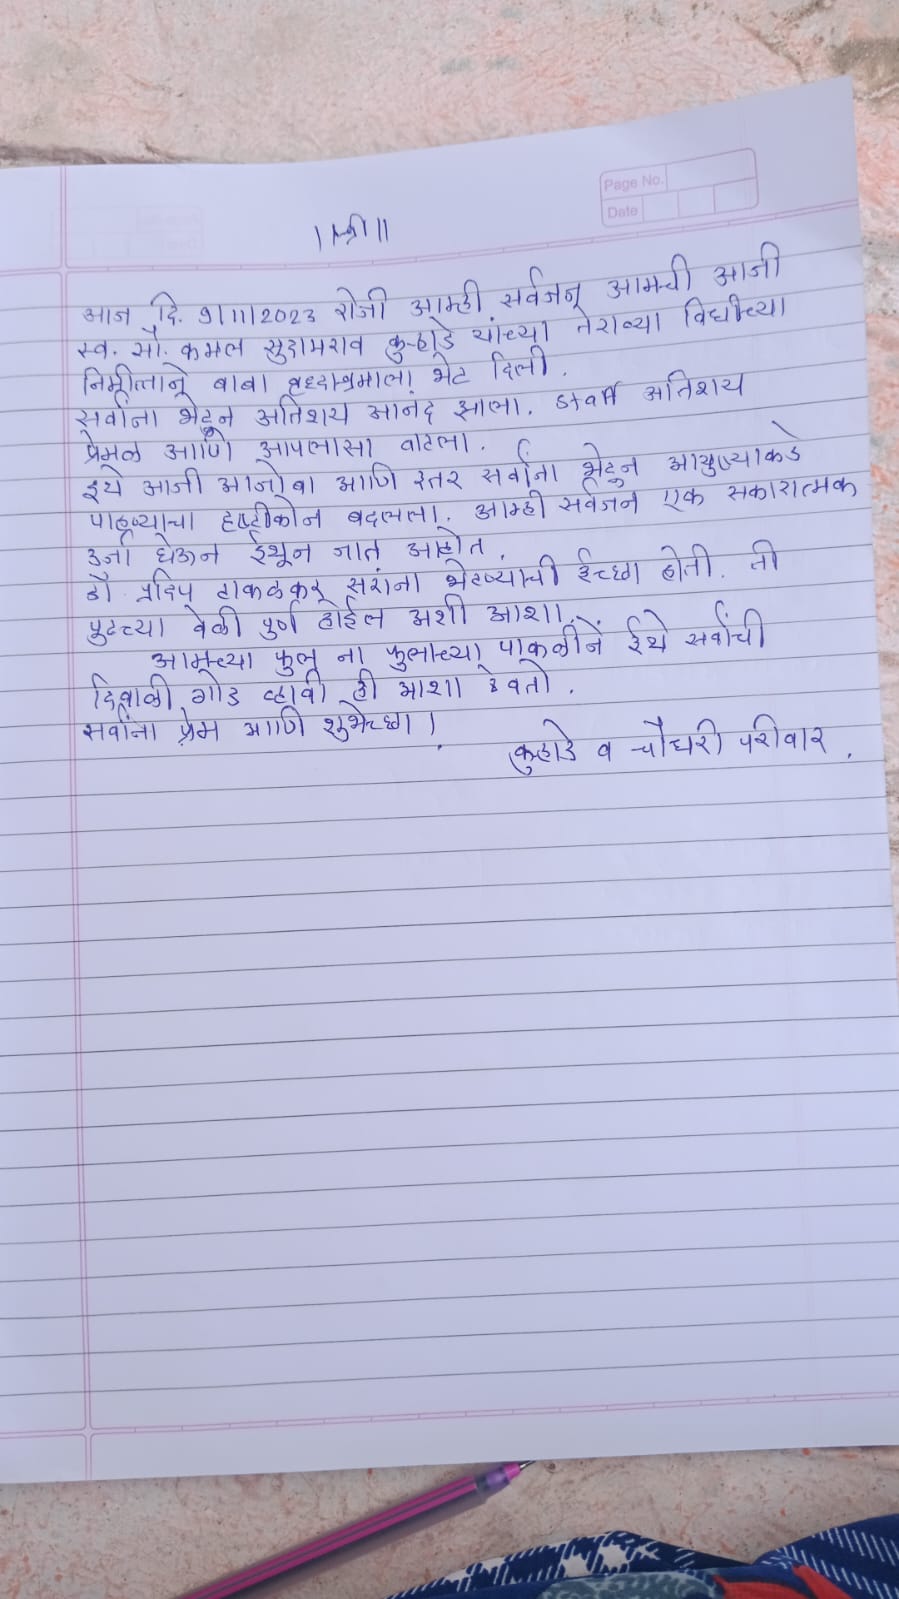 ।श्री॥
Page No.
Date
आज दि. 9/11/2023 रोजी आम्ही सर्वजन आमची आजी
स्व. सौ. कमल सुदामराव कुऱ्हाडे यांच्या तेराव्या विधीच्या
निमीत्ताने बाबा वृध्दाश्रमाला भेट दिली.
सर्वांना भेटून अतिशय आनंद झाला. staff अतिशय
प्रेमळ आणि आपलासा वाटला.
इथे आजी आजोबा आणि इतर सर्वांना भेटुन आयुष्याकडे
पाहण्याचा दृष्टीकोन बदलला. आम्ही सर्वजन एक सकारात्मक
उर्जा घेऊन ईथून जात आहोत.
डॉ. प्रदिप टाकळकर सरांना भेटण्याची ईच्छा होती. ती
पुढच्या वेळी पुर्ण होईल अशी आशा.
आमच्या फुल ना फुलाच्या पाकळीने ईथे सर्वांची
दिवाळी गोड व्हावी ही आशा ठेवतो.
सर्वांना प्रेम आणि शुभेच्छा!
कुऱ्हाडे व चौधरी परीवार.